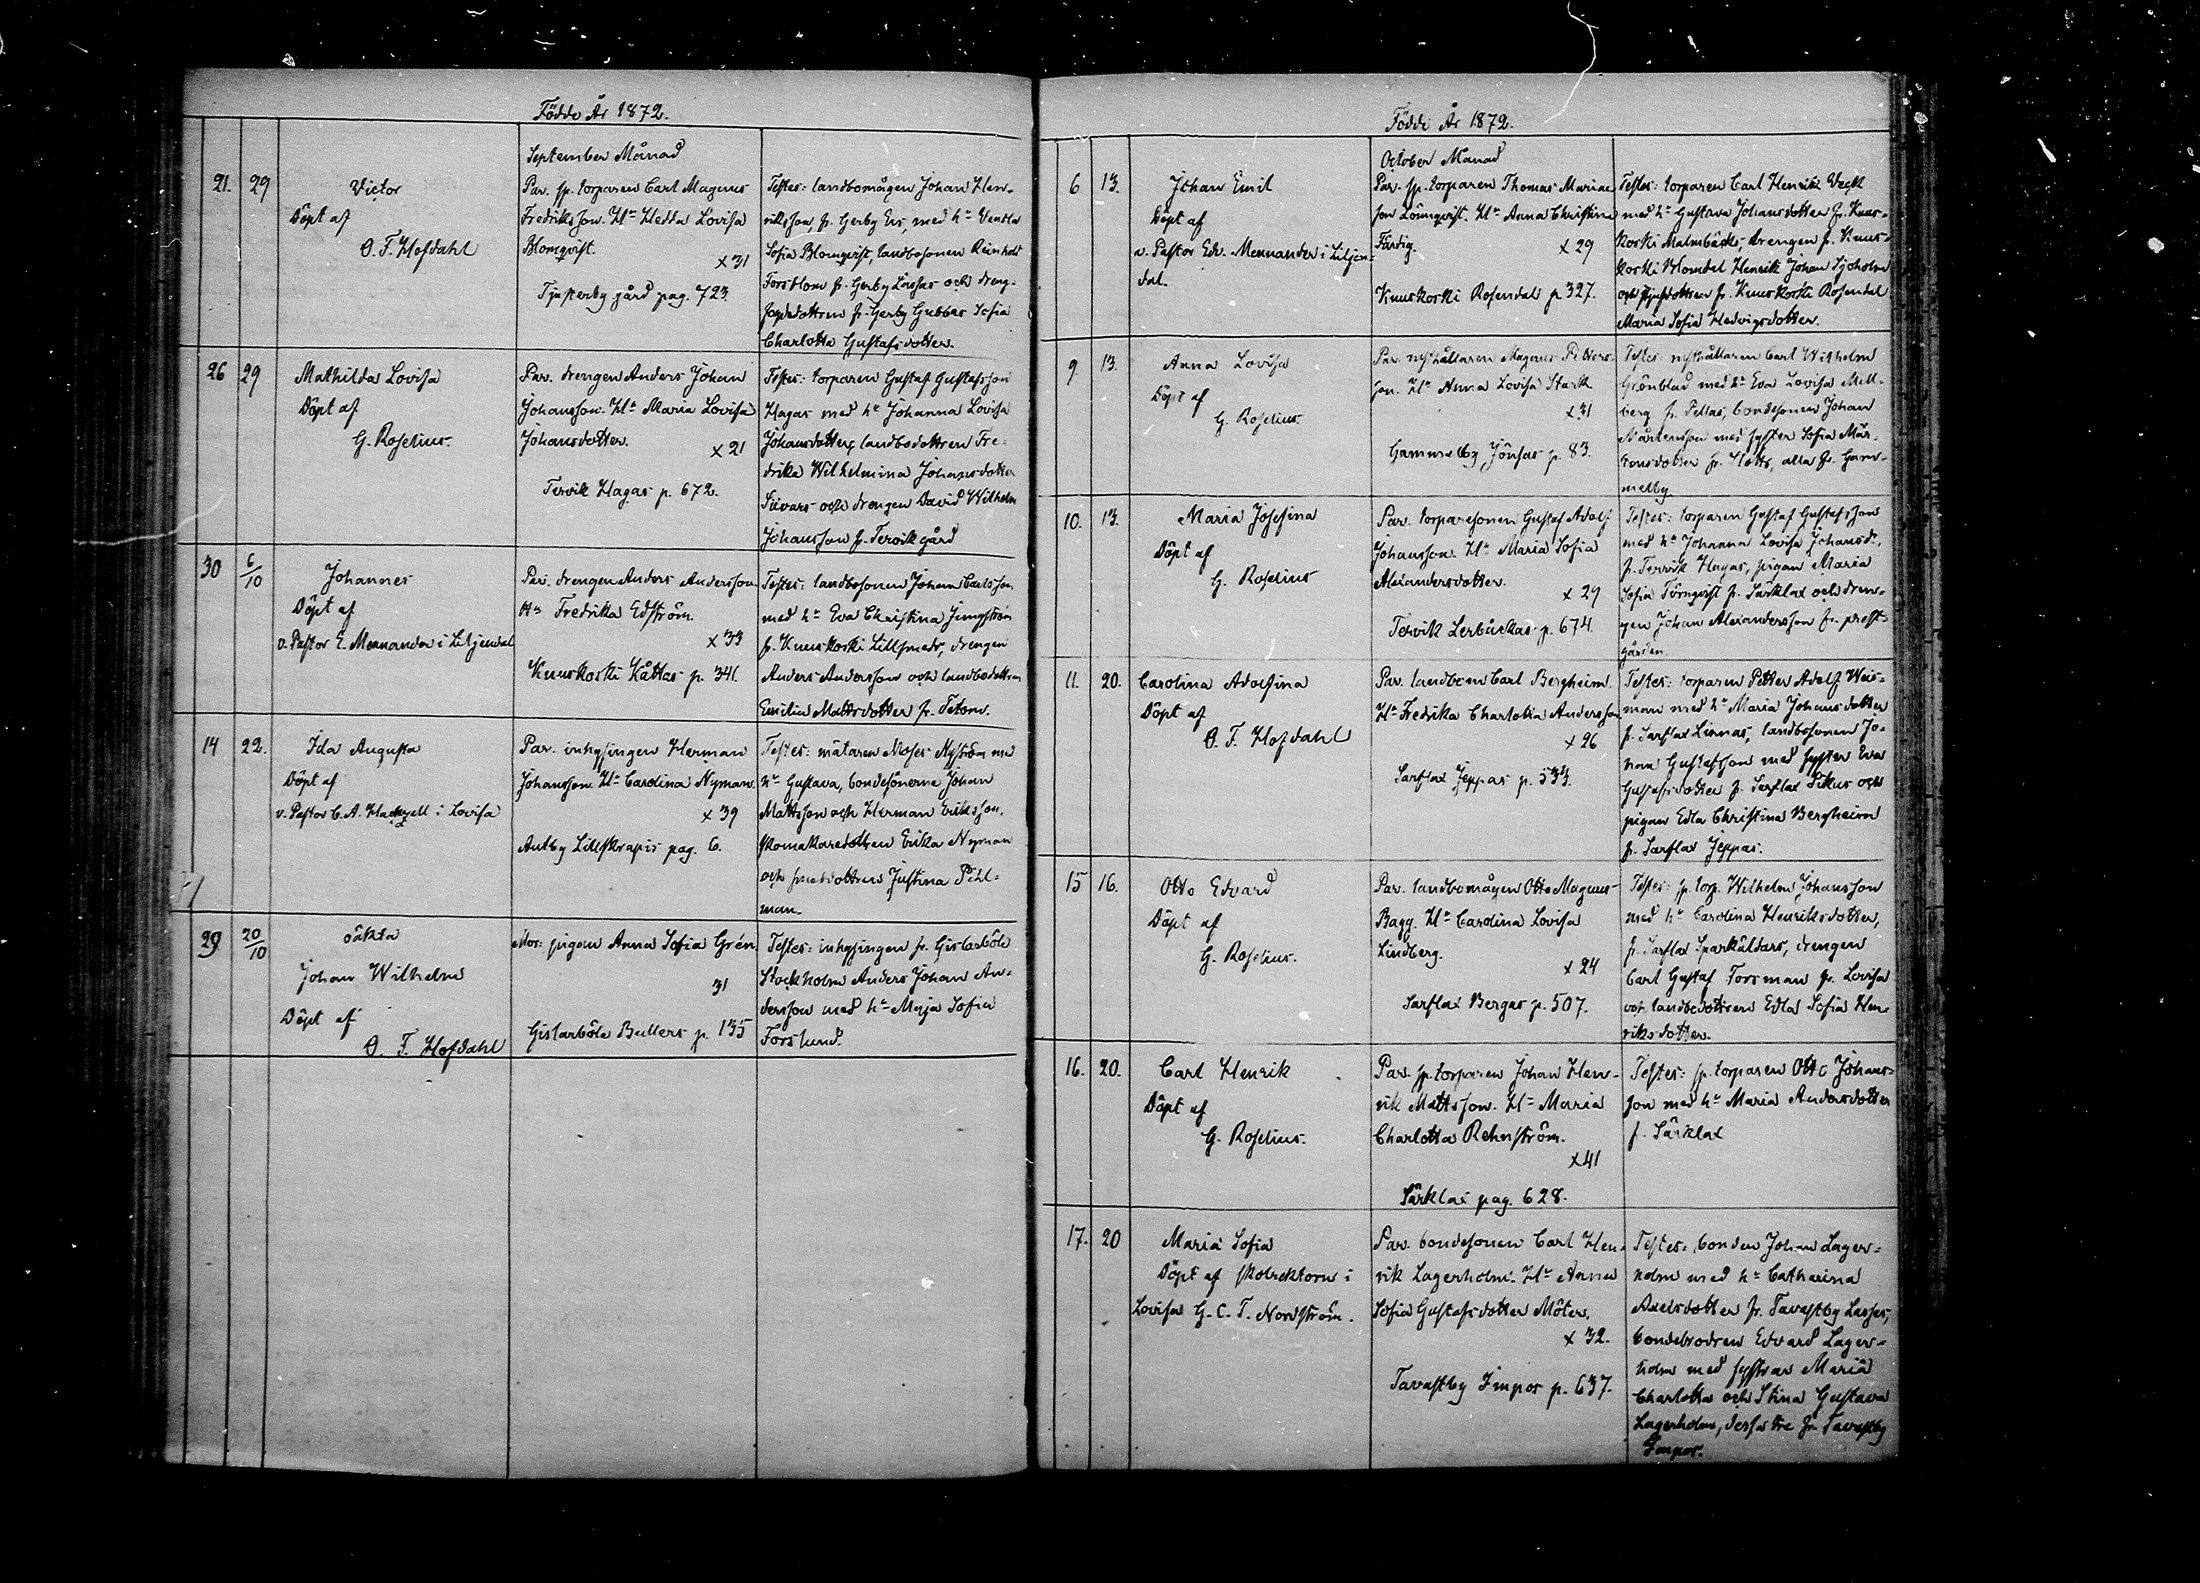 Födde År 1872.
September Månad
21. 29 Victor
Döpt af
O. F. Hofdahl
Par. sp. torparen Carl Magnus
Fredriksson. Hu Hedda Lovisa
Blomqvist.
x 31
Tjusterby gård pag. 723.
Testes: landbomågen Johan Hen-
riksson, fr. Gerby Ers, med hu Vendla
Sofia Blomqvist, landbosonen Reinholt
Forsblom fr. Gerby Lassas och dreng-
fogdedottren fr. Gerby Gubbas Sofia
Charlotta Gustafsdotter.
26 29 Mathilda Lovisa
Döpt af
G. Roselius.
Par. drengen Anders Johan
Johansson. Hu Maria Lovisa
Johansdotter.
x 21
Tervik Hagas p. 672.
Testes: torparen Gustaf Gustafsson
Hagas med hu Johanna Lovisa
Johansdotter, landbodottren Fre-
drika Wilhelmina Johansdotter
Siivars och drengen David Wilhelm
Johansson fr. Tervik gård
30 6/10 Johannes
Döpt af
v. Pastor E. Mennander i Liljendal
Par. drengen Anders Andersson
Hu Fredrika Edström.
x 33
Kuuskoski Kåttas p. 341.
Testes: landbosonen Johan Carlsson
med hu Eva Christina Ljungström
fr. Kuuskoski Lillsmeds, drengen
Anders Andersson och landbodottren
Emilia Mattsdotter fr. Tetom.
14 22. Ida Augusta
Döpt af
v. Pastor C. A. Hackzell i Lovisa
Par. inhysingen Herman
Johansson. Hu Carolina Nyman.
x 39
Antby Lillskrapis pag. 6.
Testes: mätaren Moses Nyström med
hu Gustava, bondesönerne Johan
Mattsson och Herman Eriksson,
skomakaredottren Erika Nyman
och smedsdottren Justina Pihl-
man.
29 20/10 oäkta
Johan Wilhelm
Döpt af
O. F. Hofdahl
Mor: pigan Anna Sofia Grén.
31
Gislarböle Bullers p. 135
Testes: inhysingen fr. Gislarböle
Stockholm Anders Johan An-
dersson med hu Maja Sofia
Forslund.
Födde År 1872.
October Månad
6 13. Johan Emil
Döpt af
v. Pastor Edv. Mennander i Liljen-
dal.
Par. sp. torparen Thomas Marian
son Lönnqvist. Hu Anna Christina
Färdig.
x 29
Kuuskoski Rosendal p. 327.
Testes: torparen Carl Henrik Veck
med hu Gustava Johansdotter fr. Kuus-
koski Malmbacks, drengen fr. Kuus-
koski Blomdal Henrik Johan Sjöholm
och dottren fr. Kuuskoski Rosendal
Maria Sofia Hedvigsdotter.
9 13. Anna Lovisa
Döpt af
G. Roselius.
Par. rusthållaren Magnus Petters-
son. Hu Anna Lovisa Stark
x 31
Gammelby Jönsas p. 83.
Testes rusthållaren Carl Wilhelm
Grönblad med hu Eva Lovisa Mell-
berg fr. Pellas, bondesonen Johan
Mårtensson med syster Sofia Mår-
tensdotter fr. Klotts, alla fr. Gam-
melby.
10. 13. Maria Josefina
Döpt af
G. Roselius
Par. torparesonen Gustaf Adolf
Johansson. Hu Maria Sofia
Alexandersdotter.
x 29
Tervik Lerbackas p. 674.
Testes: torparen Gustaf Gustafsson
med hu Johanna Lovisa Johansdr,
fr. Tervik Hagas, pigan Maria
Sofia Törnqvist fr. Särklax och dren-
gen Johan Alexandersson fr. prest-
gården.
11. 20. Carolina Adolfina
Döpt af
O. F. Hofdahl
Par. landbon Carl Bergheim.
Hu Fredrika Charlotta Andersson
x 26
Sarflax Jeppas p. 533.
Testes: torparen Petter Adolf Weis-
man med hu Maria Johansdotter
fr. Sarflax Linnas, landbosonen Jo-
han Gustafsson med syster Eva
Gustafsdotter fr. Sarflax Fikus och
pigan Edla Christina Bergheim
fr. Sarflax Jeppas.
15 16. Otto Edvard
Döpt af
G. Roselius.
Par. landbomågen Otto Magnus-
Bagg. Hu Carolina Lovisa
Lindberg.
x 24
Sarflax Bergas p. 507.
Testes: sp. torp. Wilhelm Johansson
med hu Carolina Henriksdotter,
fr. Sarflax Sparkuldars, drengen
Carl Gustaf Forsman fr. Lovisa
och landbodottren Edla Sofia Hen-
riksdotter.
16. 20. Carl Henrik
Döpt af
G. Roselius.
Par. sp. torparen Johan Hen-
rik Mattsson. Hu Maria
Charlotta Rehnström.
x 41
Särklax pag. 628.
Testes: sp. torparen Otto Johans-
son med hu Maria Andersdotter
f. Särklax
17. 20 Maria Sofia
Döpt af skolrektorn i
Lovisa G. C. T. Nordström.
Par. bondesonen Carl Hen-
rik Lagerholm. Hu Anna
Sofia Gustafsdotter Möter.
x 32.
Tavastby Impos p. 637.
Testes: bonden Johan Lager-
holm med hu Catharina
Axelsdotter fr. Tavastby Lasses,
bondebrodren Edvard Lager-
holm med systrar Maria
Charlotta och Stina Gustava
Lagerholm, dessa tre fr. Tavastby
Impos.